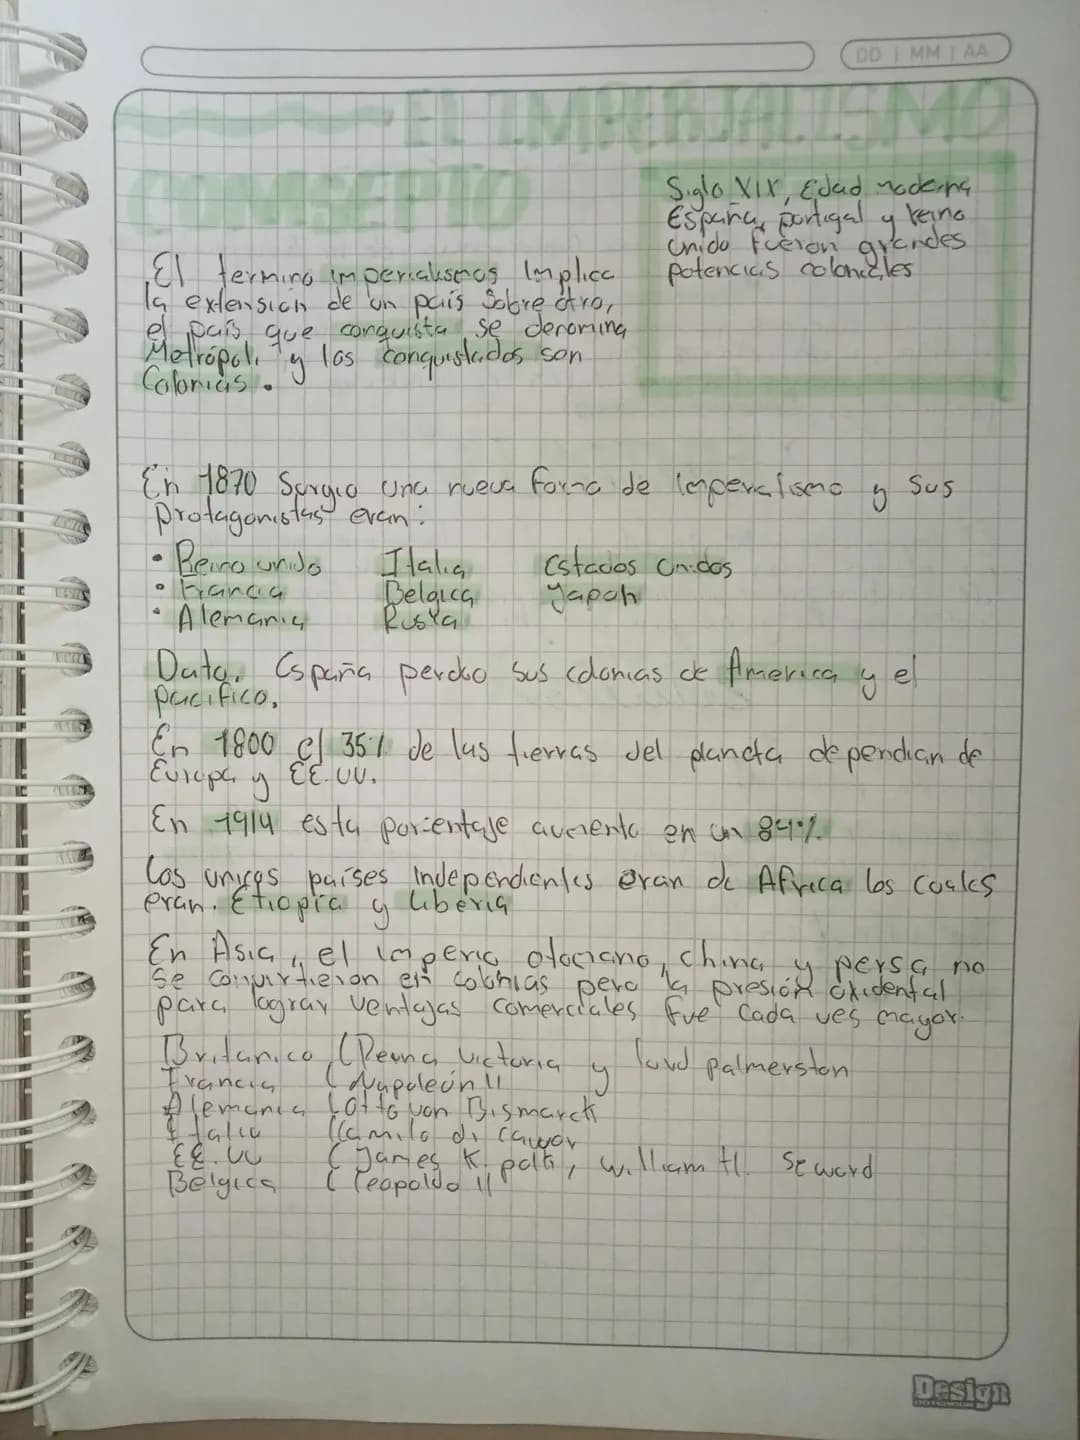 DD | MM | AA
EL IMPERIALISMO
CONCEPTO
Siglo XIX, Edad moderna
España, portugal y reino
unido fueron grandes
potencias coloniales
El termino imperialismos Implica
la extension de un país sobre otro,
el país que conquista se denomina
Metrópoli y los conquistados son
Colonias.
En 1870 Surgio una nueva forma de Imperialismo y sus
protagonistas eran:
• Reino unido Italia Estados Unidos
• Francia Belgica Japon
• Alemania Rusia
Dato. España perdio sus colonias de America y el
pacifico.
En 1800 el 35% de las tierras del planeta dependian de
Europa y EE.UU.
En 1914 esta porcentaje aumento en un 84%.
Los unicos países Independientes eran de Africa los cuales
eran. Etiopía y Liberia
En Asia, el imperio otomano, china y persa no
se convirtieron en colonias pero la presión oxidental
para lograr ventajas comerciales fue cada ves mayor.
Britanico (Reina victoria y lord palmerston
Francia (Napoleón II
Alemania (otto von Bismarck
Italia (Camilo di cavor
EE.UU (James K. polk, william H. Seward
Belgica (leopoldo II
Design